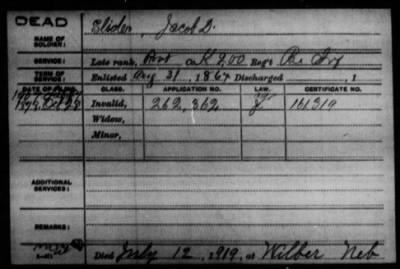 DEAD
NAME OF SOLDIER: Slider, Jacob D.
SERVICE: Late rank, Pvt Co. K 200 Reg't Pa Inf
TERM OF SERVICE: Enlisted Aug 31, 1864 Discharged , 1
DATE OF FILING. CLASS. APPLICATION NO. LAW. CERTIFICATE NO.
1879 Invalid, 262,362 161319
Widow,
Minor,
ADDITIONAL SERVICES:
REMARKS:
Died July 12, 1919, at Wilber Neb